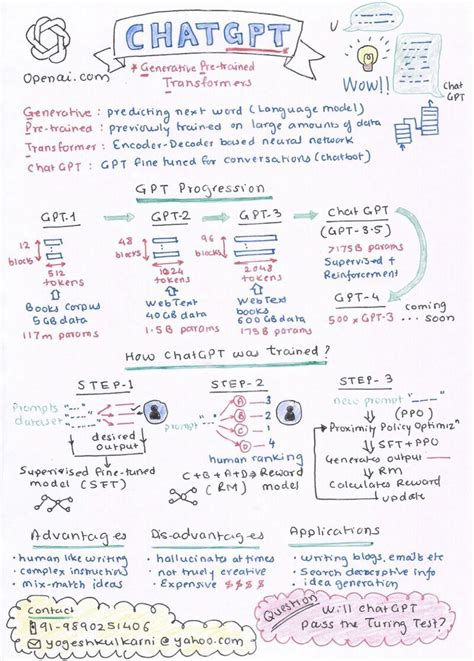 CHATGPT
Openai.com
* Generative Pre-trained
Transformers
U
Wow!!
Chat
GPT
Generative : predicting next word (Language model)
Pre-trained : previously trained on large amounts of data
Transformer : Encoder-Decoder based neural network
Chat GPT : GPT fine tuned for conversations (chatbot)
GPT Progression
GPT-1
GPT-2
GPT-3
Chat GPT
(GPT-3.5)
12
blocks
512
tokens
48
blocks
1024
tokens
96
blocks
2048
tokens
>175B params
Supervised +
Reinforcement
Books Corpus
5GB data
117m params
WebText
40GB data
1.5B params
WebText
books
600GB data
175B params
GPT-4
500 x GPT-3
coming
... soon
How ChatGPT was trained?
STEP-1
Prompts
dataset
desired
output
Supervised fine-tuned
model (SFT)
STEP-2
prompt
A 3
B 1
C 2
D 4
human ranking
C+B+A+D → Reward
(RM) model
STEP-3
new prompt
(PPO)
Proximity Policy Optimiz'n
SFT+PPO
Generates output
RM
Calculates Reward
update
Advantages
• human like writing
• complex instruction
• mix-match ideas
Dis-advantages
• hallucinate at times
• not truely creative
• Expensive $$$$
Applications
• writing blogs, emails etc
• Search descriptive info
• idea generation
Contact
91-9890251406
yogeshkulkarni@yahoo.com
Question
Will ChatGPT
pass the Turing Test?